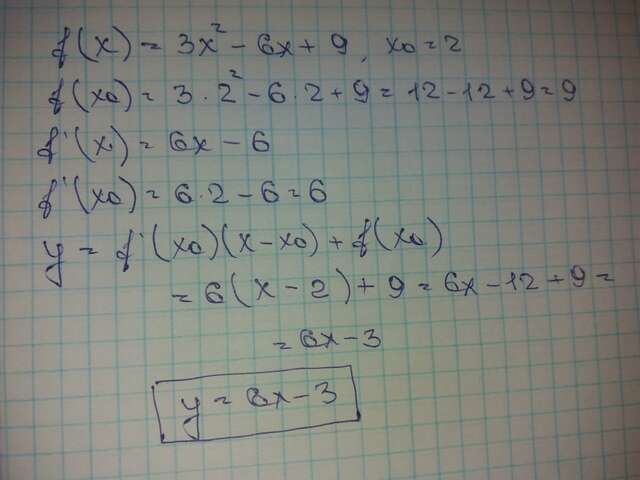 f(x) = 3x² - 6x + 9, x₀ = 2
f(x₀) = 3 · 2² - 6 · 2 + 9 = 12 - 12 + 9 = 9
f'(x) = 6x - 6
f'(x₀) = 6 · 2 - 6 = 6
y = f'(x₀)(x - x₀) + f(x₀)
= 6(x - 2) + 9 = 6x - 12 + 9 =
= 6x - 3
y = 6x - 3